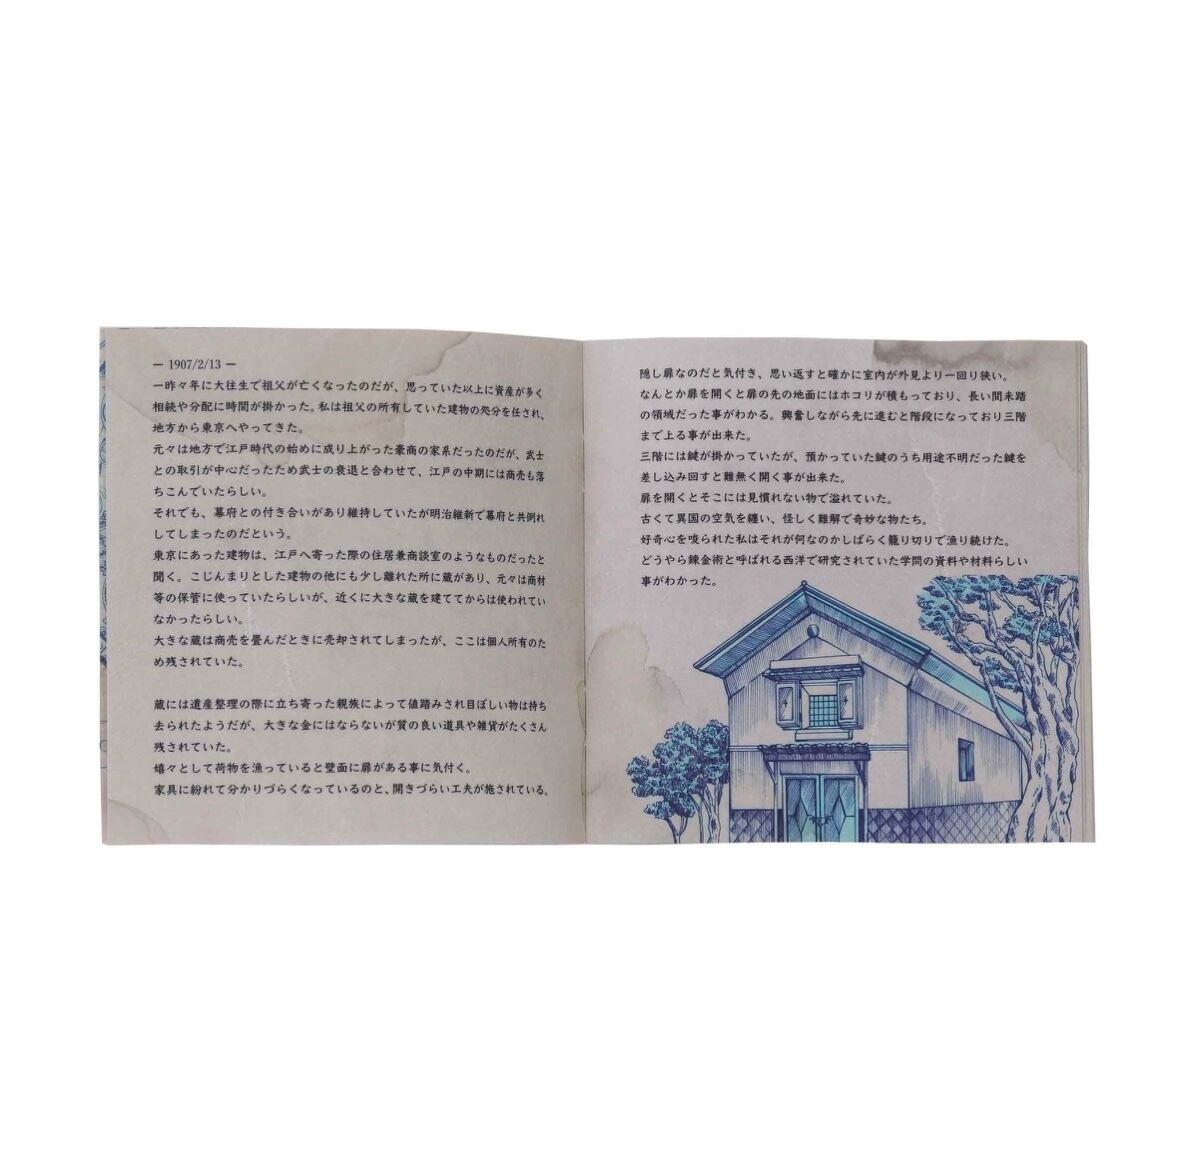 ― 1907/2/13 ―
一昨々年に大往生で祖父が亡くなったのだが、思っていた以上に資産が多く
相続や分配に時間が掛かった。私は祖父の所有していた建物の処分を任され、
地方から東京へやってきた。
元々は地方で江戸時代の始めに成り上がった豪商の家系だったのだが、武士
との取引が中心だったため武士の衰退と合わせて、江戸の中期には商売も落
ちこんでいたらしい。
それでも、幕府との付き合いがあり維持していたが明治維新で幕府と共倒れ
してしまったのだという。
東京にあった建物は、江戸へ寄った際の住居兼商談室のようなものだったと
聞く。こじんまりとした建物の他にも少し離れた所に蔵があり、元々は商材
等の保管に使っていたらしいが、近くに大きな蔵を建ててからは使われてい
なかったらしい。
大きな蔵は商売を畳んだときに売却されてしまったが、ここは個人所有のた
め残されていた。
蔵には遺産整理の際に立ち寄った親族によって値踏みされ目ぼしい物は持ち
去られたようだが、大きな金にはならないが質の良い道具や雑貨がたくさん
残されていた。
嬉々として荷物を漁っていると壁面に扉がある事に気付く。
家具に紛れて分かりづらくなっているのと、開きづらい工夫が施されている。
隠し扉なのだと気付き、思い返すと確かに室内が外見より一回り狭い。
なんとか扉を開くと扉の先の地面にはホコリが積もっており、長い間未踏
の領域だった事がわかる。興奮しながら先に進むと階段になっており三階
まで上る事が出来た。
三階には鍵が掛かっていたが、預かっていた鍵のうち用途不明だった鍵を
差し込み回すと難無く開く事が出来た。
扉を開くとそこには見慣れない物で溢れていた。
古くて異国の空気を纏い、怪しく難解で奇妙な物たち。
好奇心を唆られた私はそれが何なのかしばらく籠り切りで漁り続けた。
どうやら錬金術と呼ばれる西洋で研究されていた学問の資料や材料らしい
事がわかった。